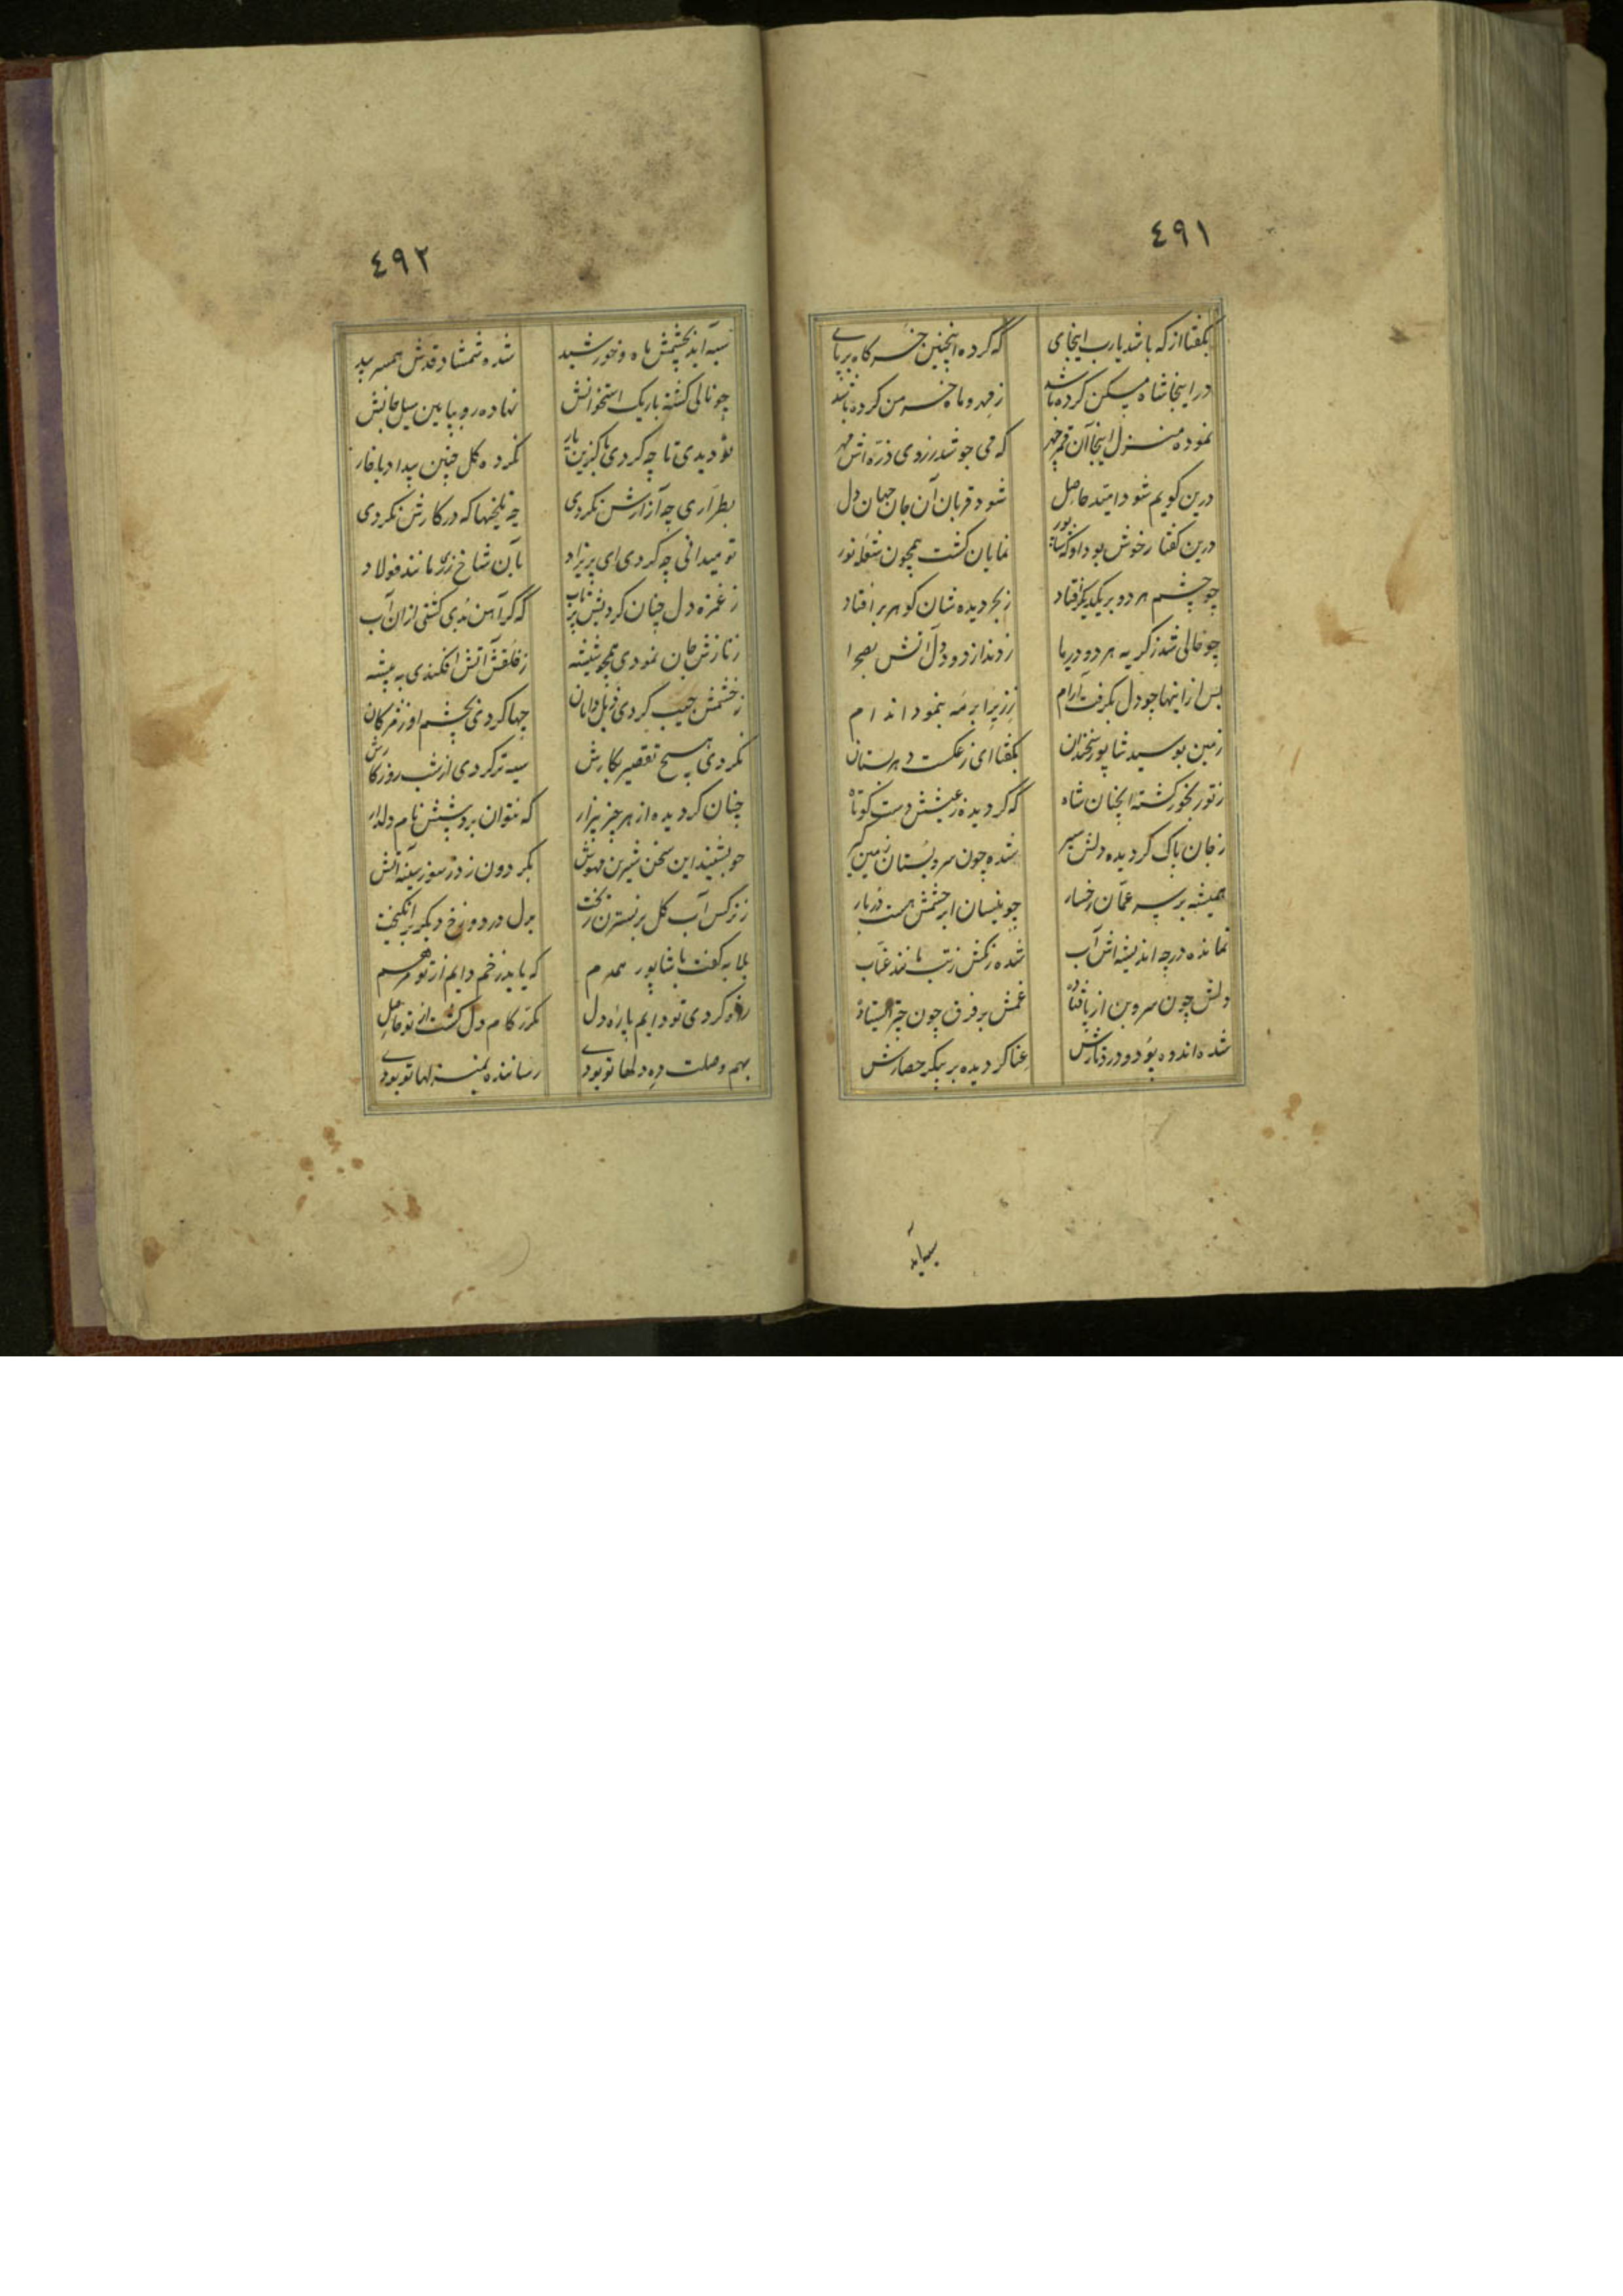 ٤٩١
بکفتا از که باشد یارب اینجای که کرده اینچنین خرکاه برپای
در اینجا شاه مسکن کرده باشد ز مهر و ماه خرمن کرده باشد
نموده منزل اینجا آن قمر چهر که می جوشد ز روی ذره اش مهر
درین کویم شود امید حاصل شود قربان آن جان جهان دل
درین کفتار خوش بود او که شاپور نمایان کشت همچون شعله نور
چو چشم هر دو بر یکدیکر افتاد ز بحر دیده شان کوهر بر افتاد
چو خالی شد ز کریه هر دو دریا زدند از دود دل آتش بصحرا
پس از اینها چو دل بکرفت آرام ز زیر ابر مه بنمود اندام
زمین بوسید شاپور سخندان بکفتا ای ز عکست دهر بستان
ز تو رنجور کشته آنچنان شاه که کردیده ز عیشش دست کوتاه
ز جان پاک کردیده دلش سیر شده چون سرو بستان زمین کیر
همیشه بر سر عمان رخسار چو نیسان ابر چشمش هست دربار
نمانده در چه اندیشه اش آب شده رنکش ز تب مانند عناب
دلش چون سرو بن از پا فتاده غمش بر فرق چون چتر ایستاده
شده اندوه پود و درد تارش عنا کردیده بر پیکر حصارش
سیه آید
٤٩٢
سیه آید بچشمش ماه و خورشید شده شمشاد قدش همسر بید
چو نالی کشته باریک استخوانش نهاده رو بپایین سیل جانش
تو دیدی تا چه کردی با کزین یار نکرده کل چنین بیداد با خار
بطراری چه آزارش نکردی چه تلخیها که در کارش نکردی
تو میدانی چه کردی ای پریزاد بآن شاخ زر مانند فولاد
ز غمزه دل چنان کردیش پر تاب که کر آهن بدی کشتی از ان آب
ز نازش جان نمودی همچو شیشه ز قلقش آتش افکندی به بیشه
ز خشمش جیب کردی ذیل دامان چها کردی بچشم او ز مژکان
نکردی هیچ تقصیر بکارش سیه تر کردی از شب روزکارش
چنان کردیده از هر چیز بیزار که نتوان برد پیشش نام دلدار
چو بشنید این سخن شیرین مهوش بکردون زد ز سوز سینه آتش
ز نرکس آب کل بر نسترن ریخت بدل در دوزخ دیکر بر انکیخت
بلابه کفت با شاپور همدم که یابد زخم دایم از تو مرهم
رفو کردی تو دایم پاره دل مکرر کام دل کشت از تو حاصل
بهم وصلت ده دلها تو بودی رساننده بمنزلها تو بودی